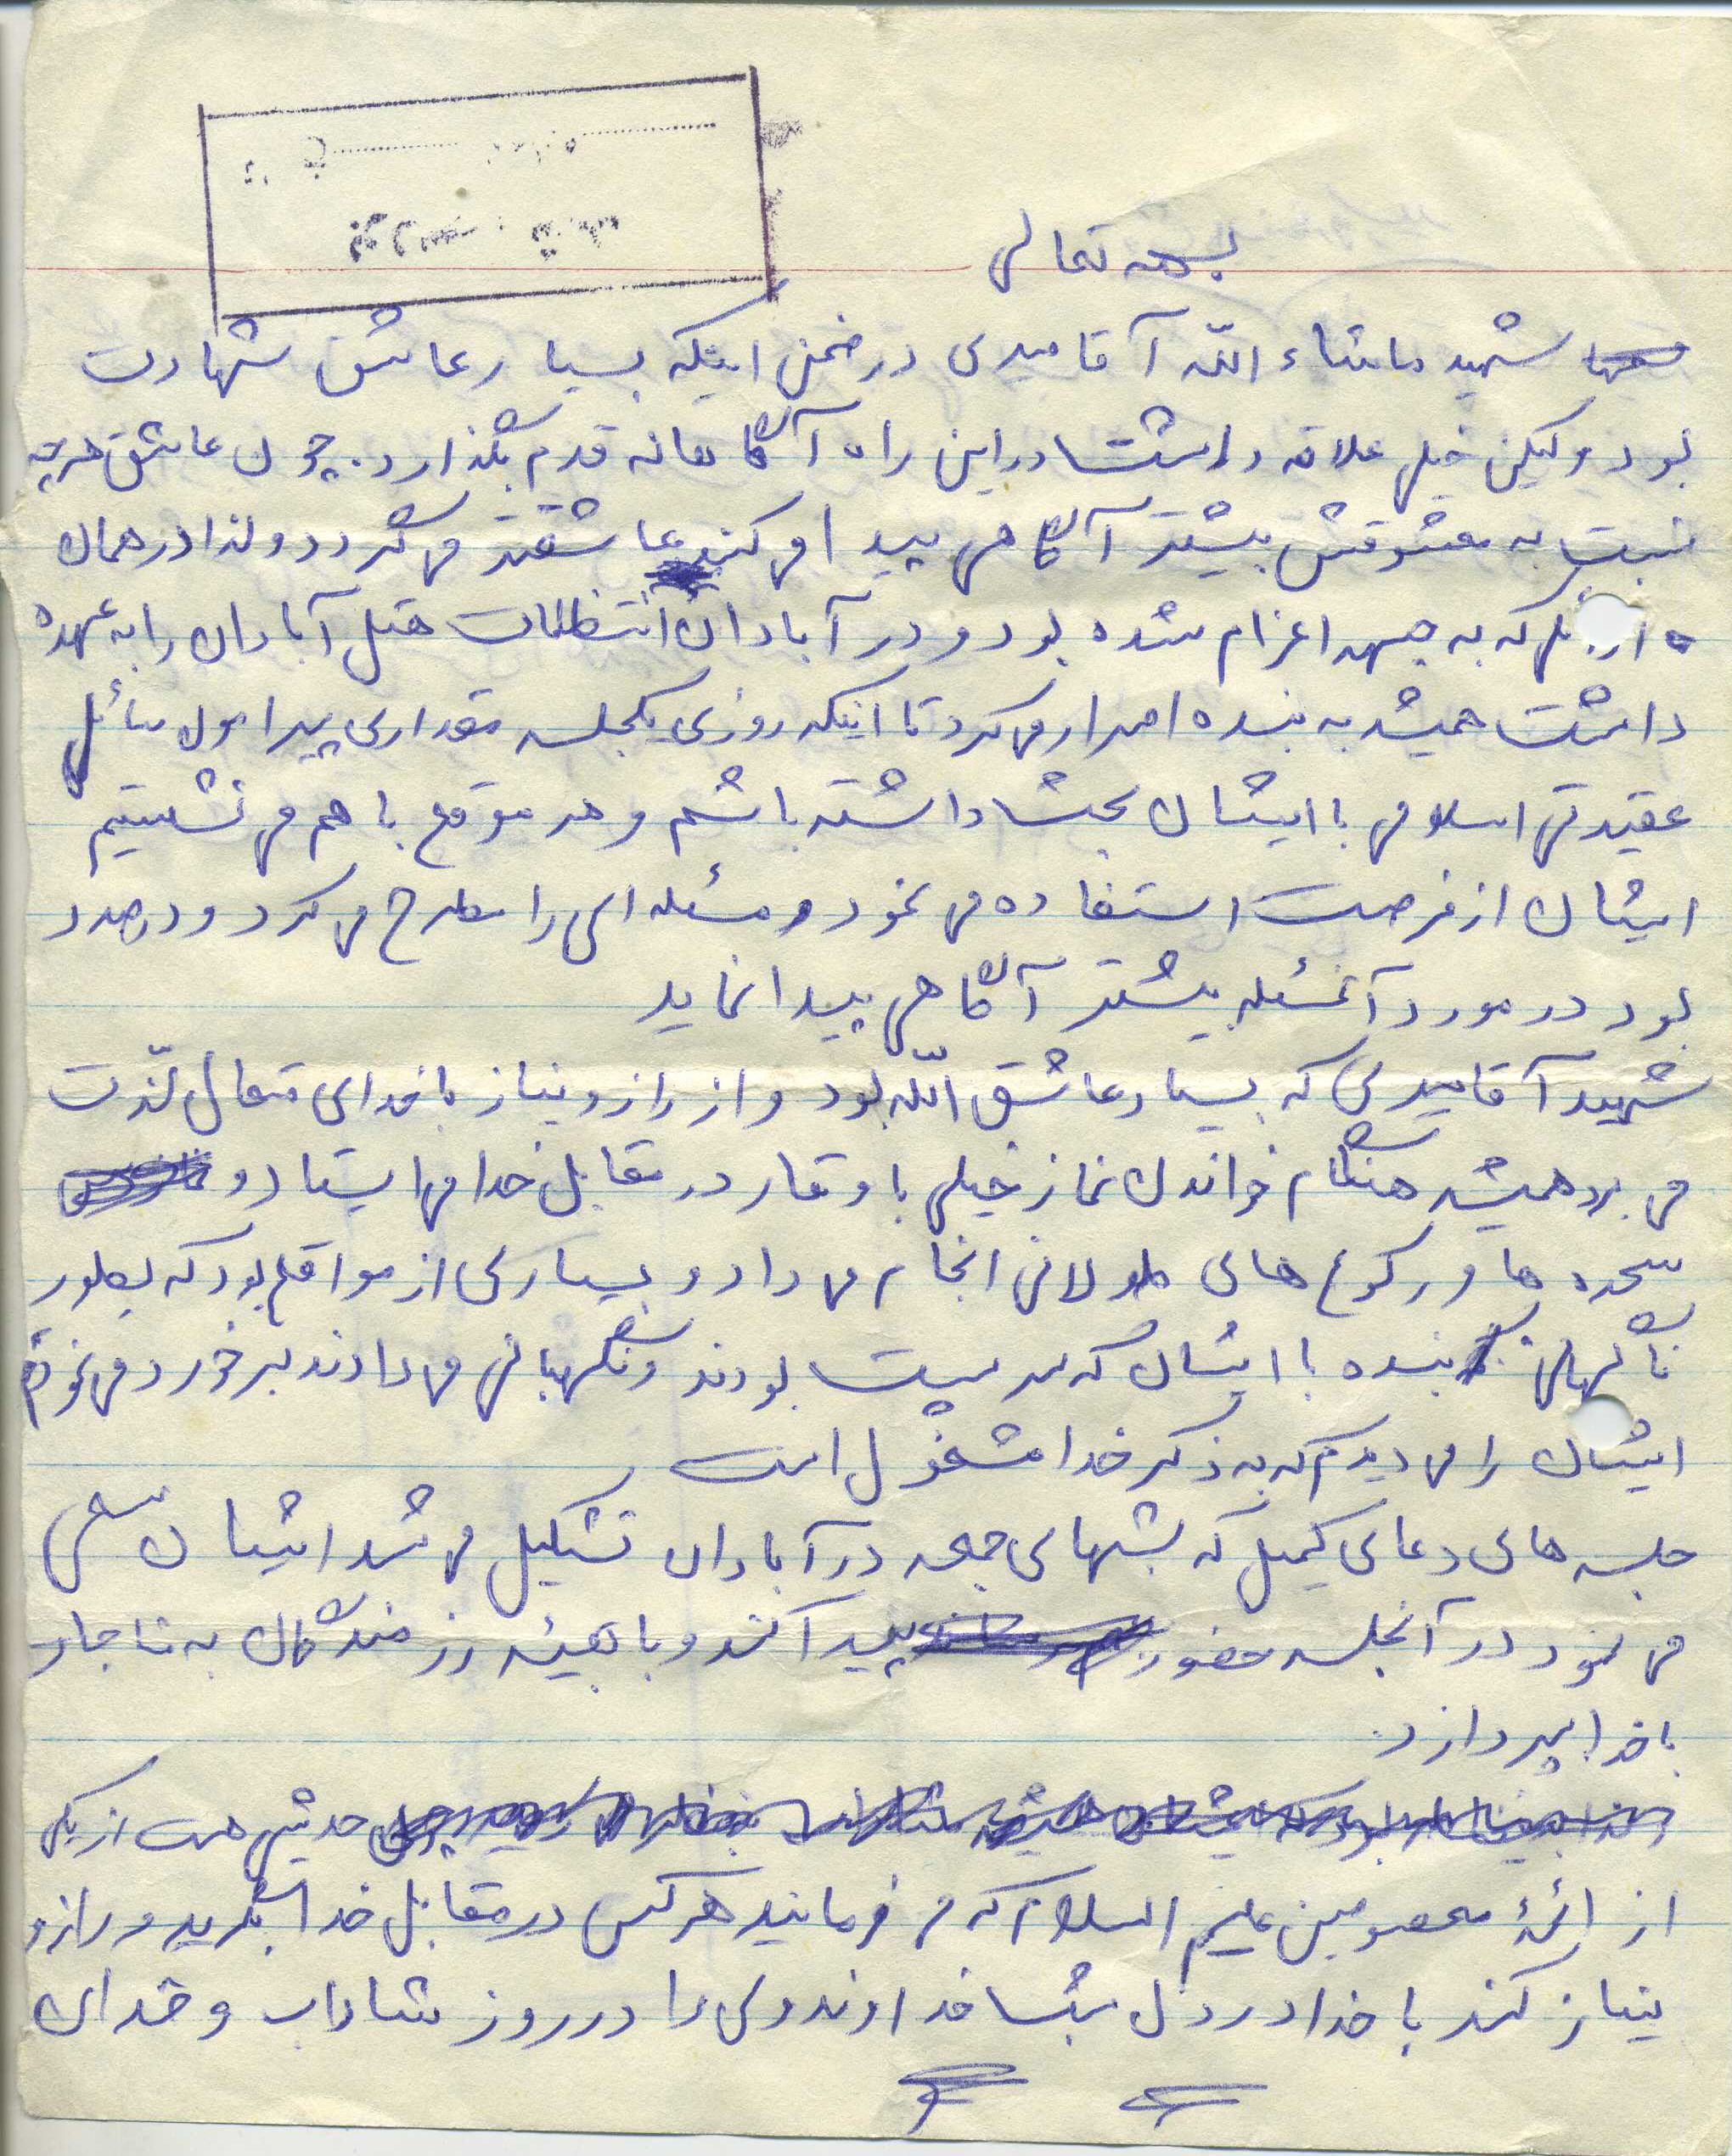 بسمه تعالی
شهید ماشاء اللّه آقامیدی در ضمن اینکه بسیار عاشق شهادت
بود ولیکن خیلی علاقه داشت در این راه آگاهانه قدم بگذارد. چون عاشق هرچه
نسبت به معشوقش بیشتر آگاهی پیدا می کند عاشقتر می گردد ولذا در همان
که به جبهه اعزام شده بود و در آبادان انتظامات هتل آبادان را به عهده
داشت همیشه به بنده اصرار می کرد تا اینکه روزی یکجلسه مقداری پیرامون مسائل
عقیدتی اسلامی با ایشان بحث داشته باشم و هر موقع با هم می نشستیم
ایشان از فرصت استفاده می نمود و مسئله ای را مطرح می کرد و درصدد
بود در مورد آنمسئله بیشتر آگاهی پیدا نماید
شهید آقامیدی که بسیار عاشق اللّه بود و از راز و نیاز با خدای متعال لذّت
می برد همیشه هنگام خواندن نماز خیلی با وقار در مقابل خدا می ایستاد و
سجده ها و رکوع های طولانی انجام می داد و بسیاری از مواقع بود که بطور
ناگهانی بنده با ایشان که سر پست بودند و نگهبانی می دادند برخورد می نمودم
ایشان را می دیدم که به ذکر خدا مشغول است
جلسه های دعای کمیل که شبهای جمعه در آبادان تشکیل می شد ایشان سعی
می نمود در آنجلسه حضور پیدا کند و با بقیه رزمندگان به مناجات
با خدا بپردازد.
حدیثی هست از یکی
از ائمهٔ معصومین علیهم السلام که می فرمایند هر کس در مقابل خدا بگرید و راز و
نیاز کند با خدا در دل شب خداوند وی را در روز شاداب و خندان